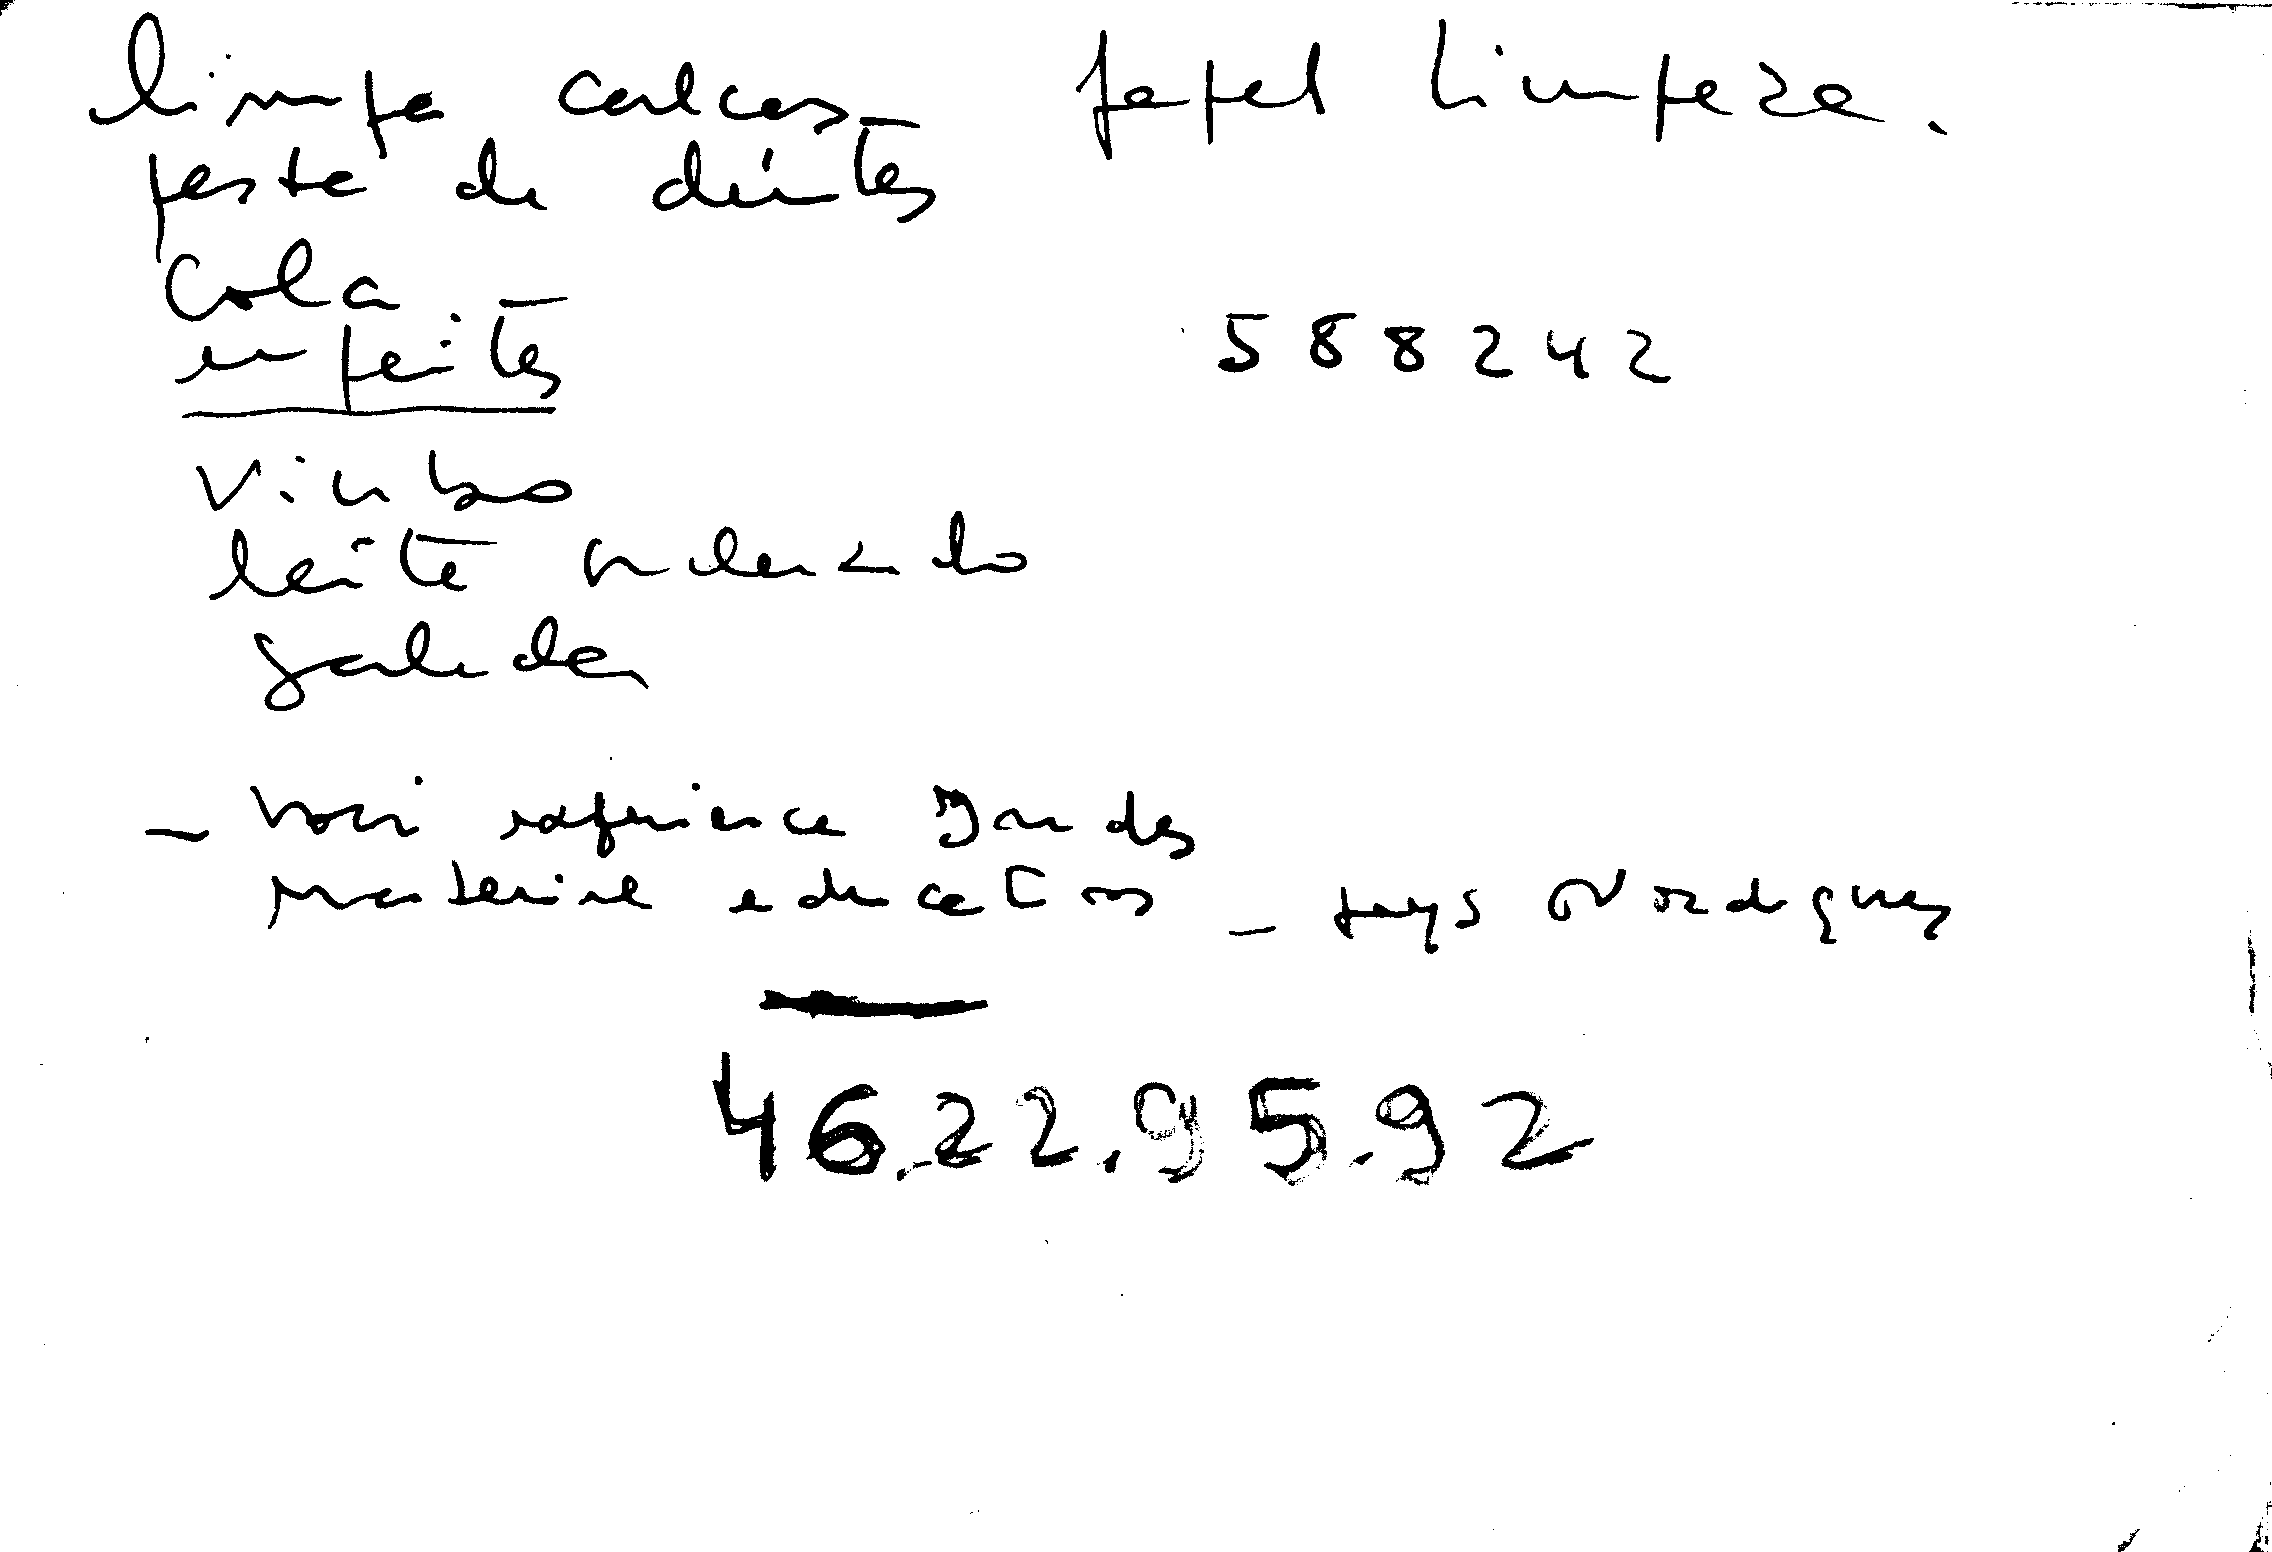 limpa calcas papel limpeza.
pasta de dentes
Cola
enfeites
588242
Vinho
leite
salada
- voir expérience Indes
matériel education - pays Nordiques
46.22.95.92